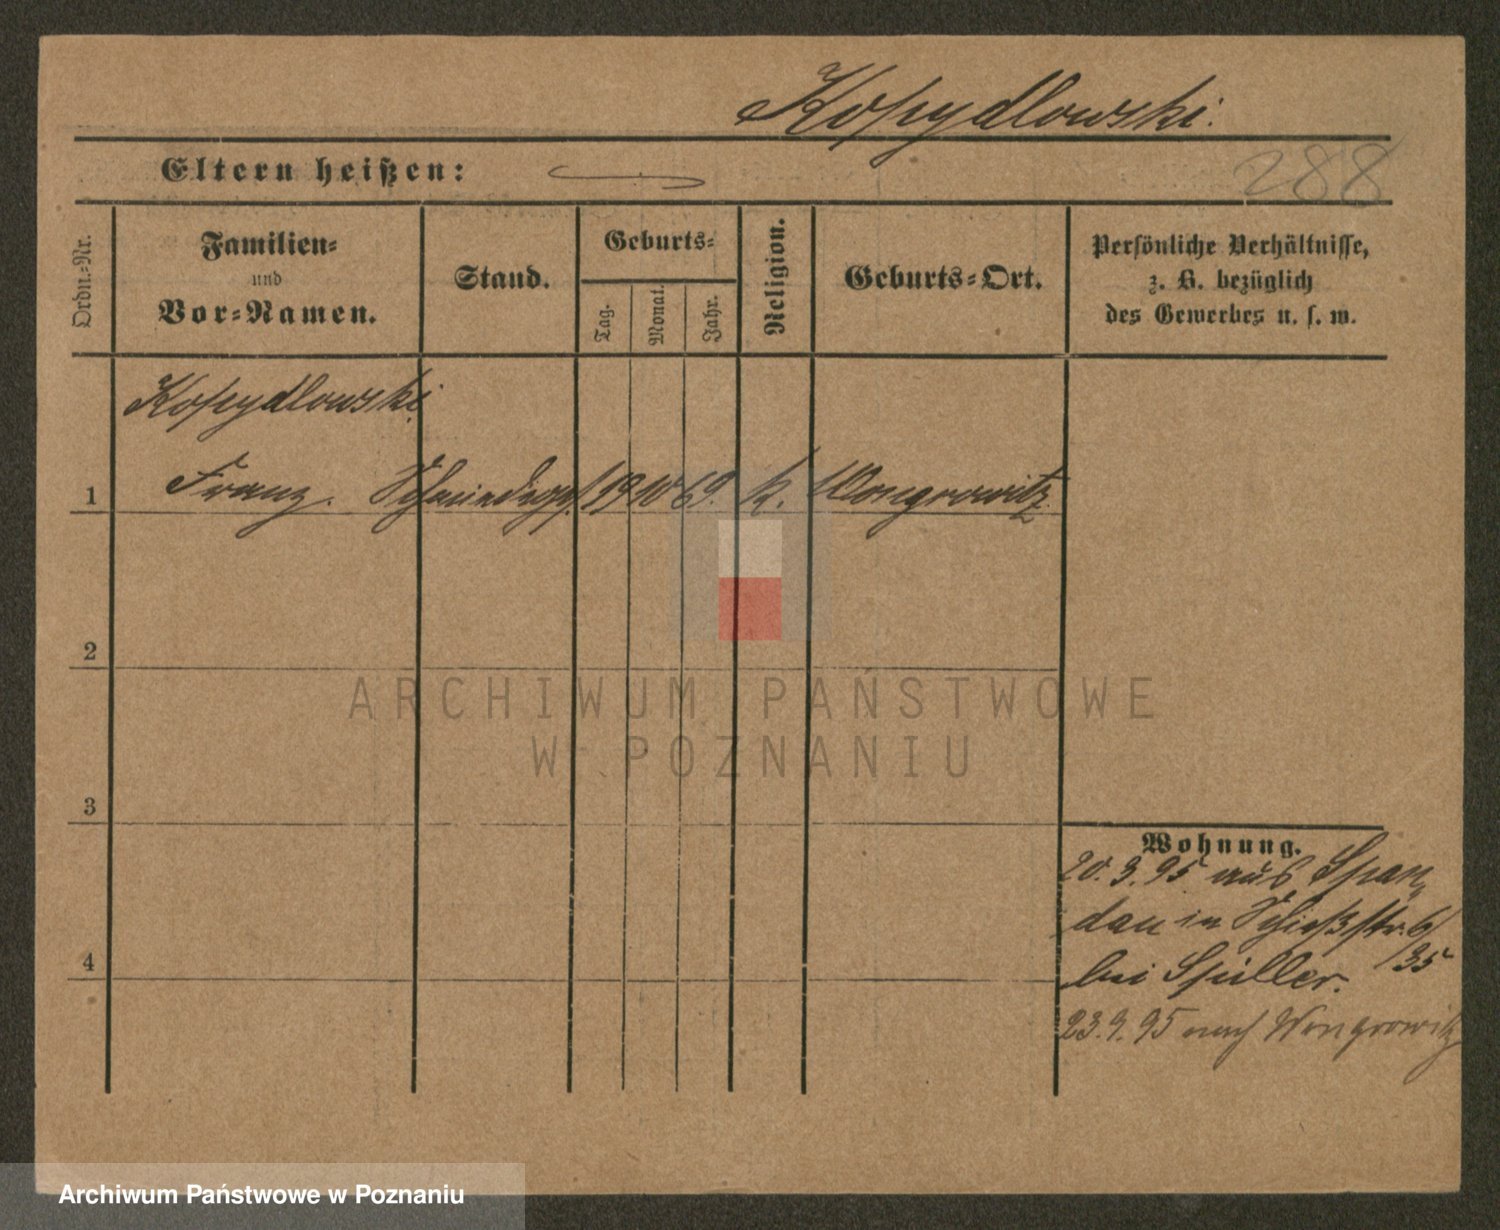 Kopydlowski.
Eltern heißen:
288
Ordn.-Nr.
Familien-
und
Vor-Namen.
Stand.
Geburts-
Tag.
Monat.
Jahr.
Religion.
Geburts-Ort.
Persönliche Verhältnisse,
z. B. bezüglich
des Gewerbes u. s. w.
Kopydlowski
1 Franz. 19 10 69. k. Wongrowitz
2
3
4
Wohnung.
20. 3. 95 aus Span
dau in Schießstr. 6/
35
bei Spiller.
23. 9. 95 nach Wongrowitz
ARCHIWUM PAŃSTWOWE
W POZNANIU
Archiwum Państwowe w Poznaniu